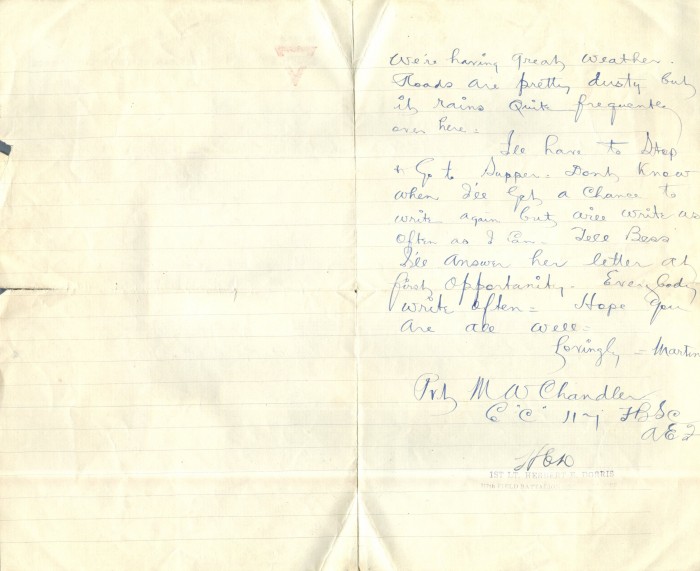 We're having great weather.
Roads are pretty dusty but
it rains quite frequently
over here.
I'll have to Stop
+ Go to Supper. Don't know
when I'll Get a chance to
write again but will write as
often as I can. Tell Bess
I'll Answer her letter at
first opportunity. Everybody
write often = Hope you
are all well =
Lovingly = Martin
Pvt M W Chandler
Co "C" 117 F B Sc
A E F
1ST LT.